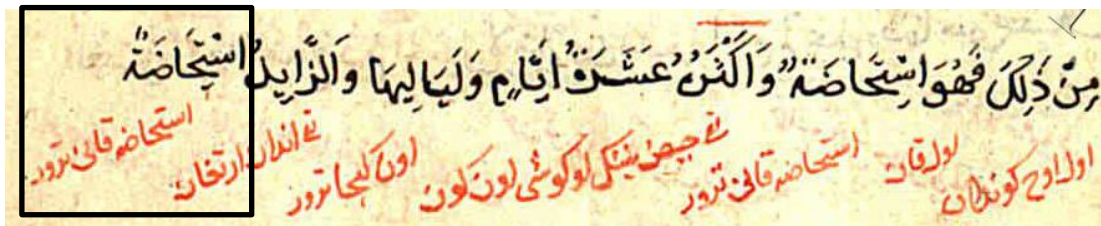 مِنْ ذَلِكَ فَهُوَ اسْتِحَاضَةٌ وَاَكْثَرُهُ عَشَرَةُ اَيَّامٍ وَلَيَالِيهَا وَالزَّايِدُ اسْتِحَاضَةٌ
اول اوچ كوندان اول قان استحاضه قانی ترور تی حيض نينك كوكوشی اون كون اون كيجا ترور تی اندان ارتغان استحاضه قانی ترور